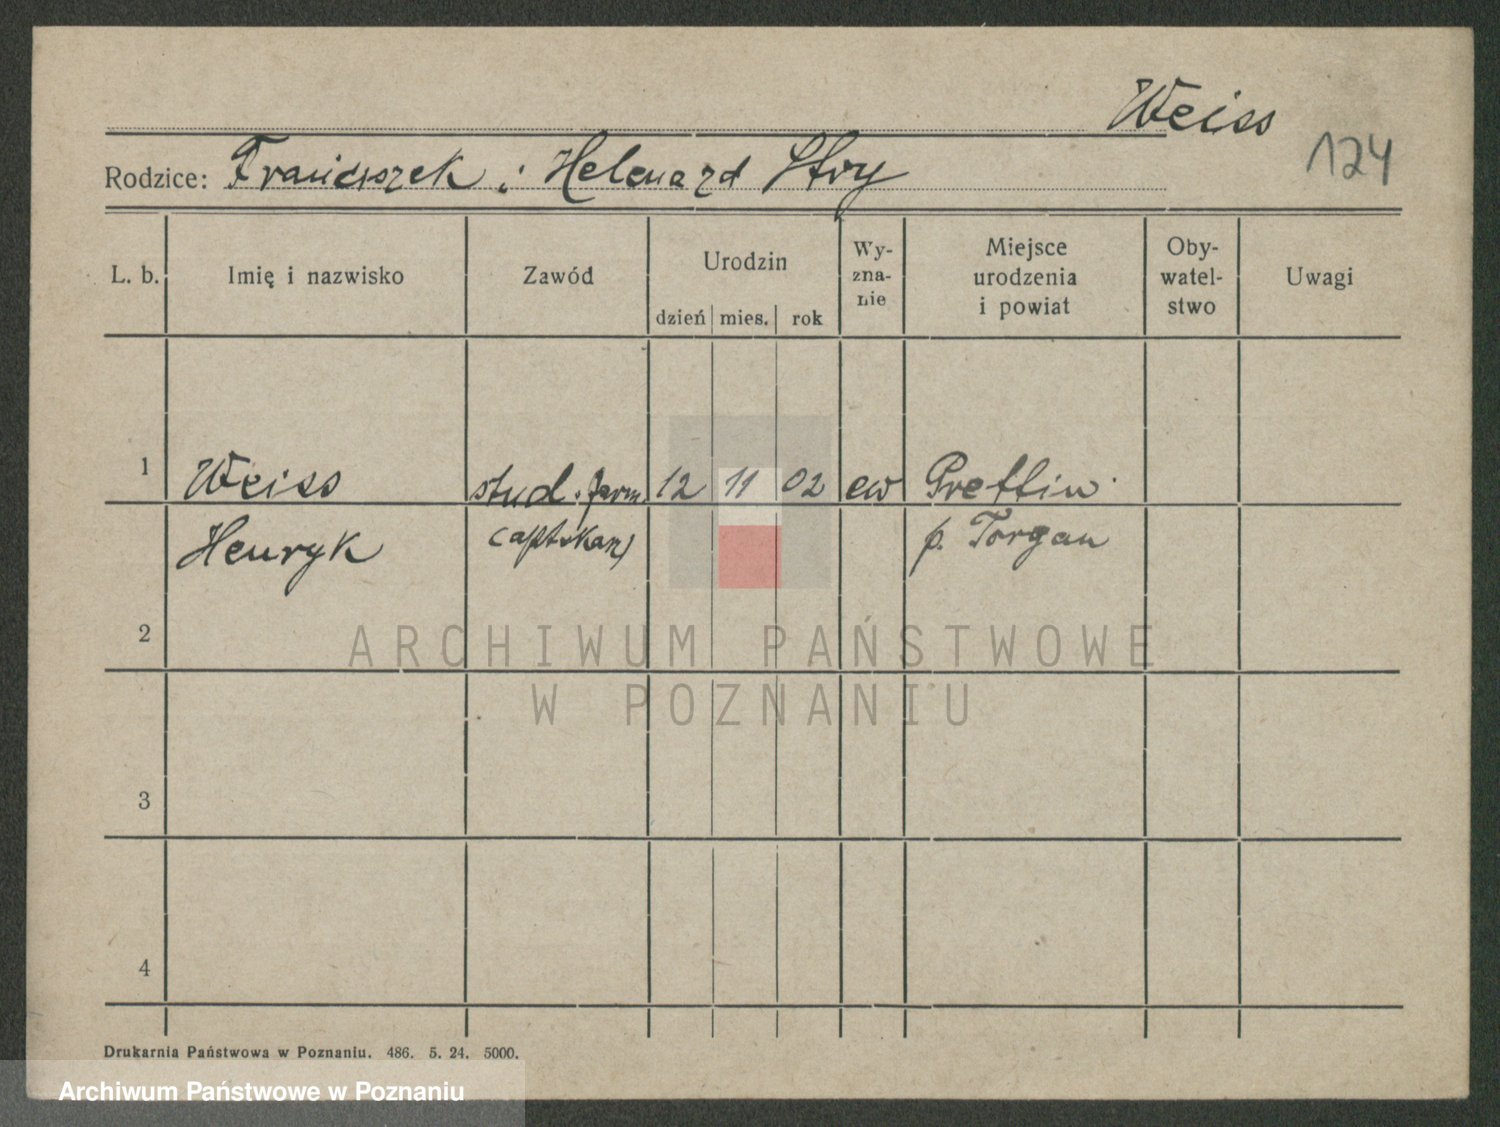 Weiss
124
Rodzice: Franciszek i Helena zd Stry
L. b. Imię i nazwisko Zawód Urodzin dzień mies. rok Wy-zna-nie Miejsce urodzenia i powiat Oby-watel-stwo Uwagi
1 Weiss stud. farm. 12 11 02 ew Prettin
Henryk (aptekarz) p. Torgau
2
ARCHIWUM PAŃSTWOWE
W POZNANIU
3
4
Drukarnia Państwowa w Poznaniu. 486. 5. 24. 5000.
Archiwum Państwowe w Poznaniu